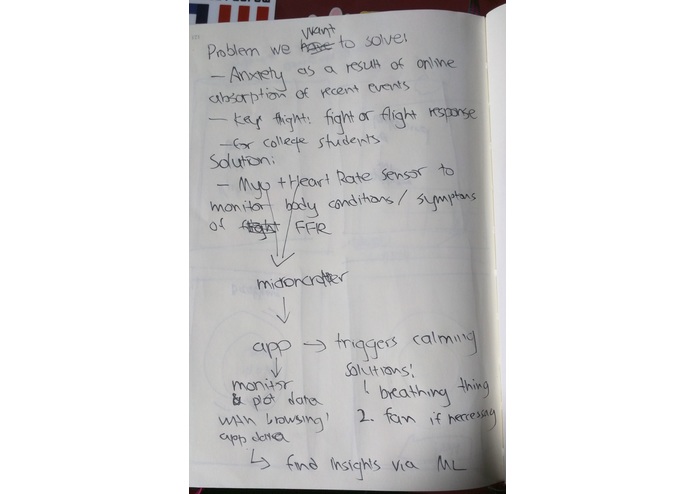 Problem we want to solve:
- Anxiety as a result of online
absorption of recent events
- Keys flight: fight or flight response
- for college students
Solution:
- Myo + Heart Rate Sensor to
monitor body conditions / symptoms
of FFR
app → triggers calming
solutions:
1. breathing thing
2. fan if neccessary
monitor
& plot data
with browsing/
app data
↳ find insights via ML